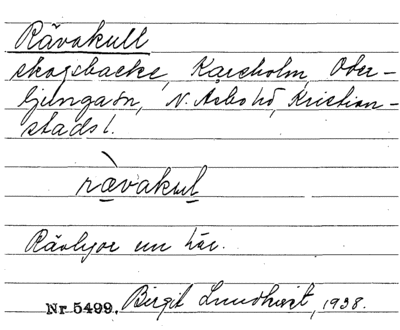 Rävakull
skogsbacke, Karsholm, Oder-
ljungaön, N. Asbo hd, Kristian-
stads l.
rävakul
Rävlyor un här.
Nr 5499. Birgit Lundkvist, 1938.